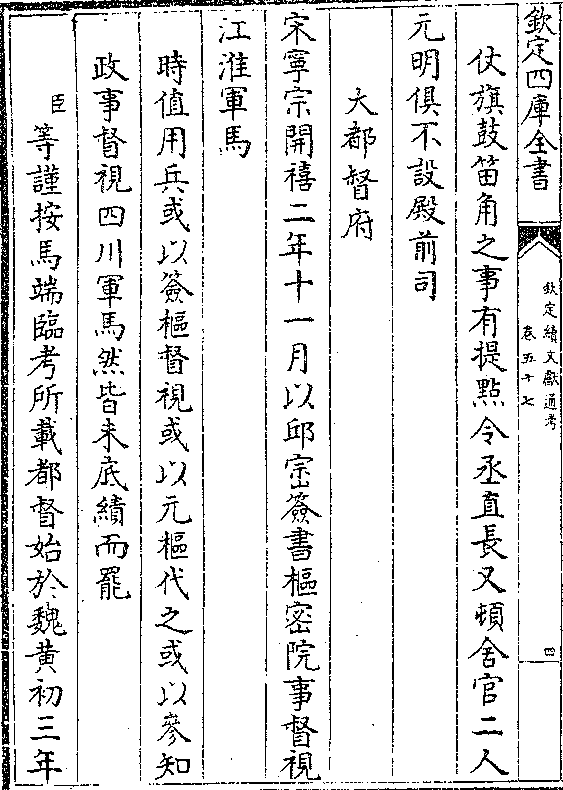 欽定四庫全書
欽定續文獻通考
卷五十七
四
仗旗鼓笛角之事有提點令丞直長又頓舍官二人
元明俱不設殿前司
大都督府
宋寧宗開禧二年十一月以邱崈簽書樞密院事督視
江淮軍馬
時值用兵或以簽樞督視或以元樞代之或以參知
政事督視四川軍馬然皆未底績而罷
臣等謹按馬端臨考所載都督始於魏黃初三年